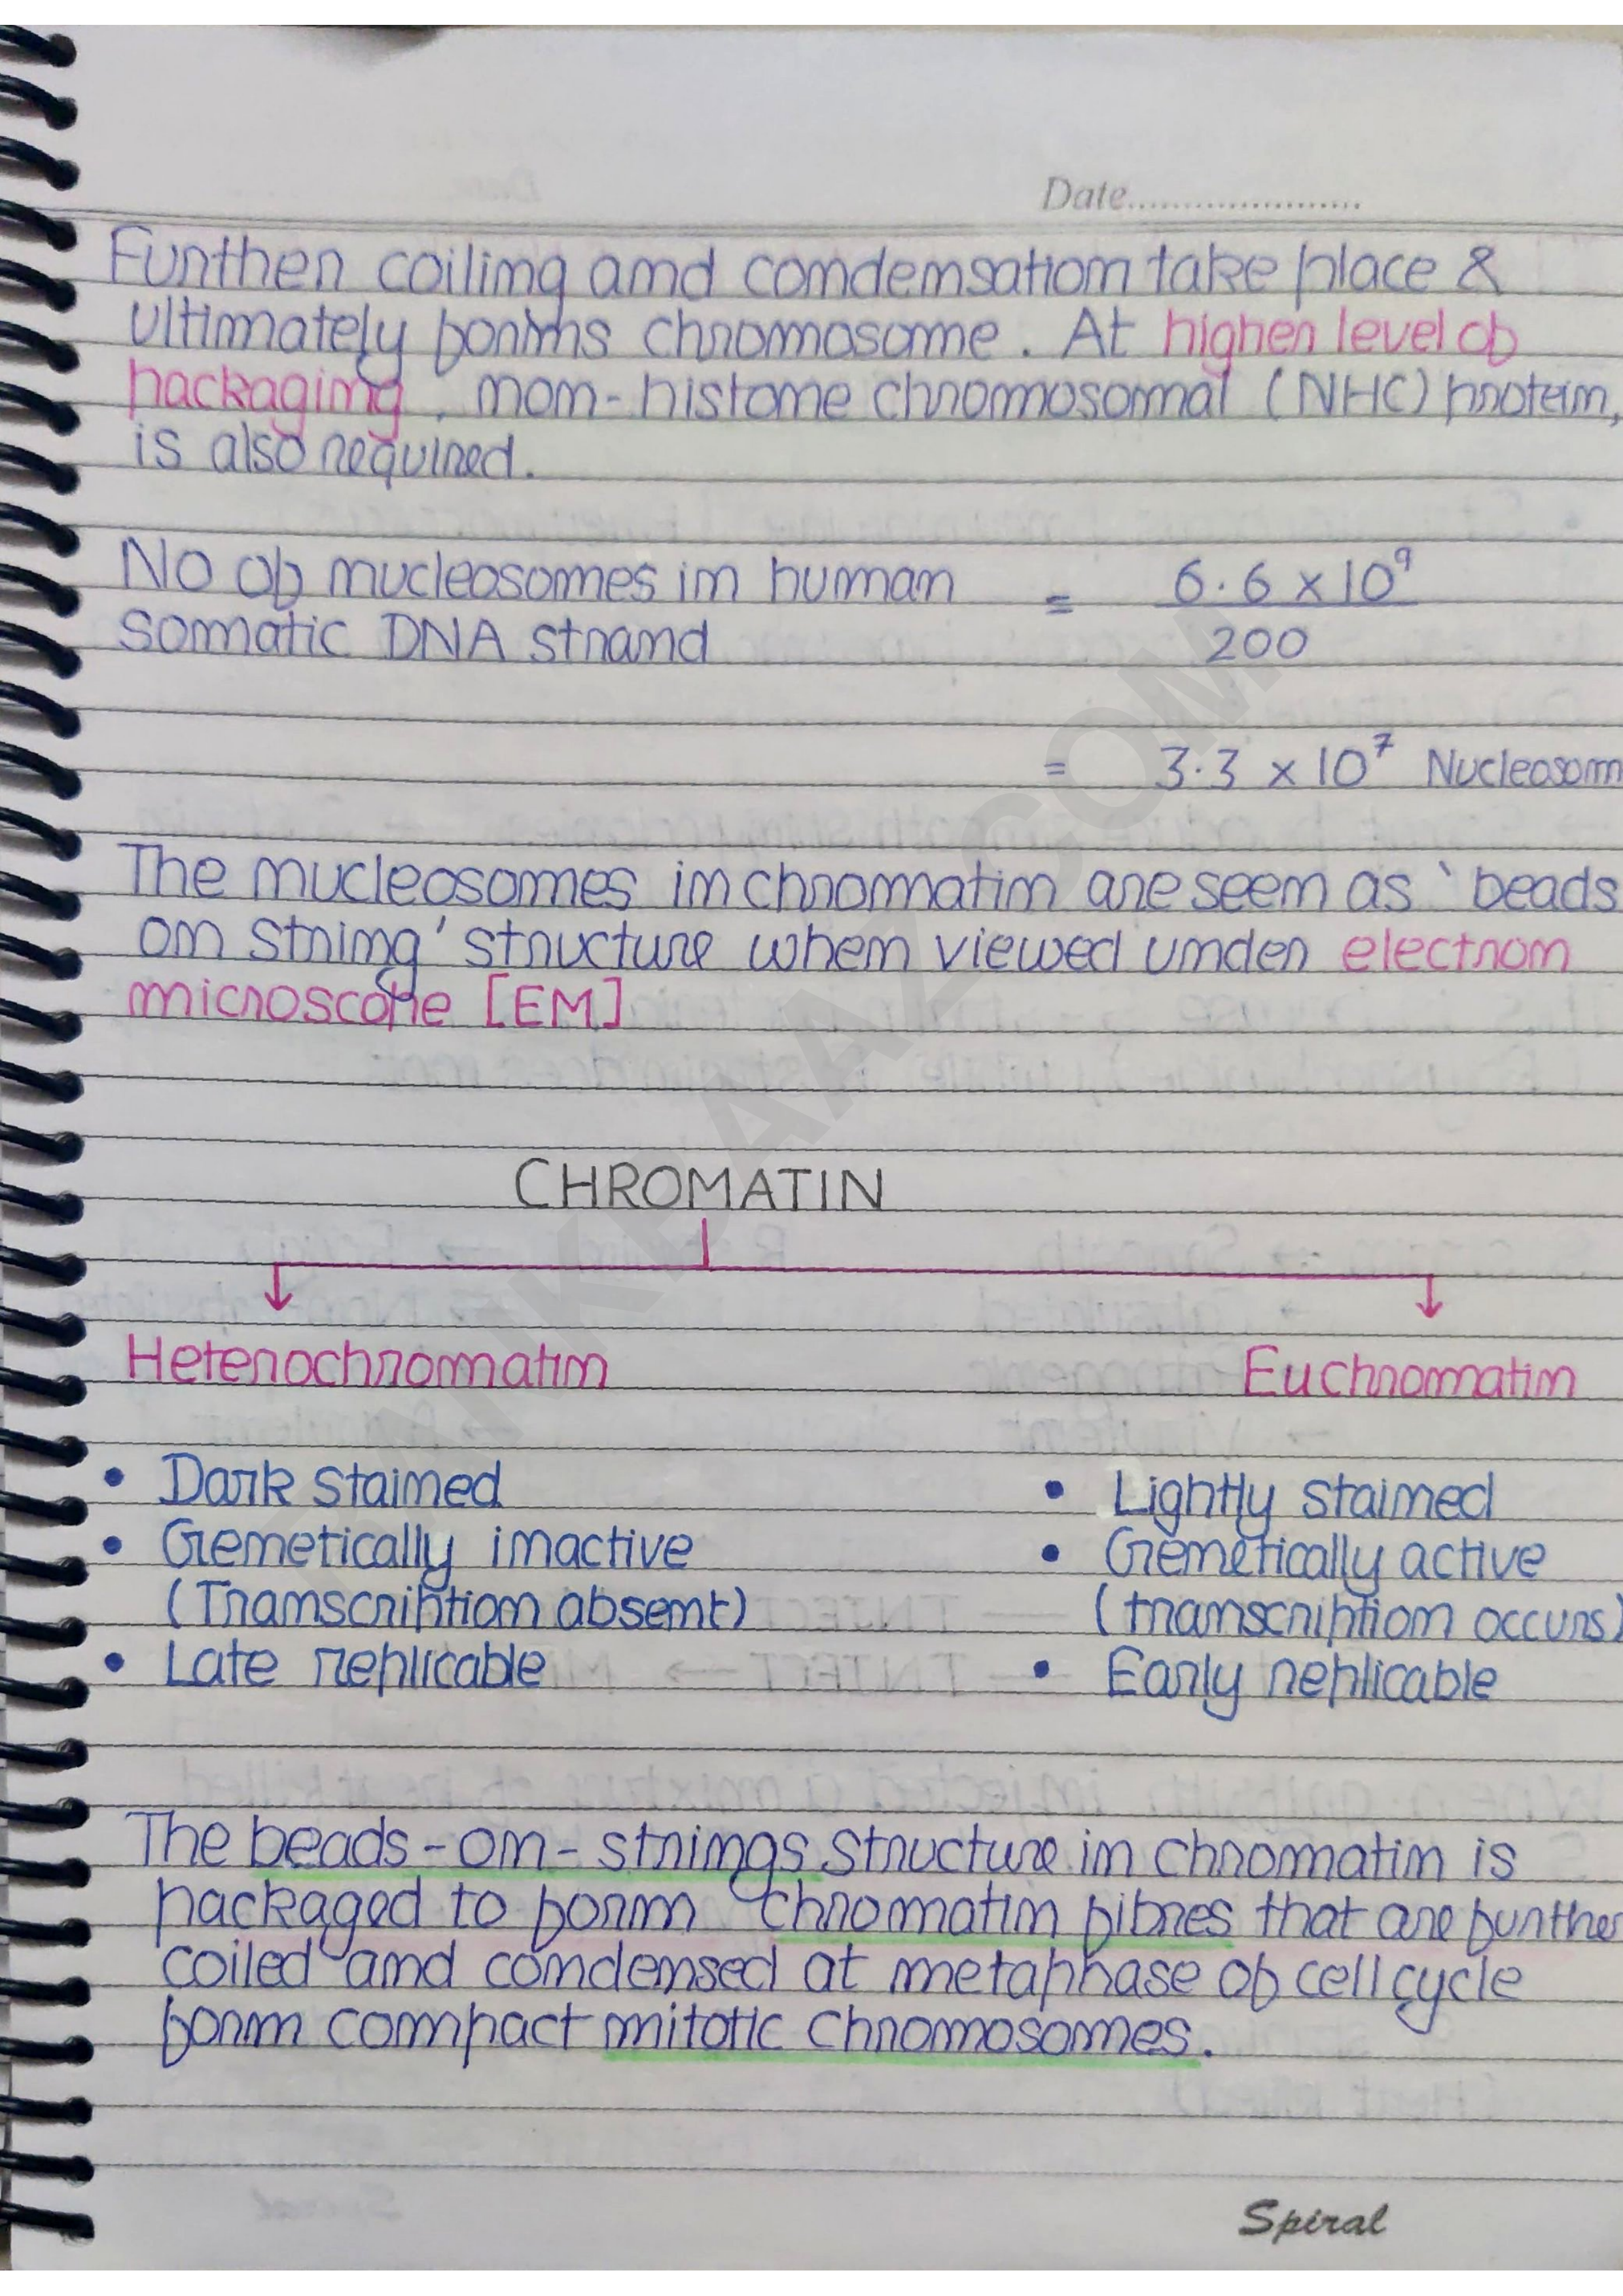 Date.....................
Further coiling and condensation take place &
ultimately forms chromosome. At higher level of
packaging, non-histone chromosomal (NHC) protein,
is also required.
No of nucleosomes in human = 6.6 x 10⁹
somatic DNA strand 200
= 3.3 x 10⁷ Nucleosom
The nucleosomes in chromatin are seen as 'beads
on string' structure when viewed under electron
microscope [EM]
CHROMATIN
Heterochromatin Euchromatin
• Dark stained • Lightly stained
• Genetically inactive • Genetically active
(Transcription absent) (transcription occurs)
• Late replicable • Early replicable
The beads-on-strings structure in chromatin is
packaged to form chromatin fibres that are further
coiled and condensed at metaphase of cell cycle
form compact mitotic chromosomes.
Spiral